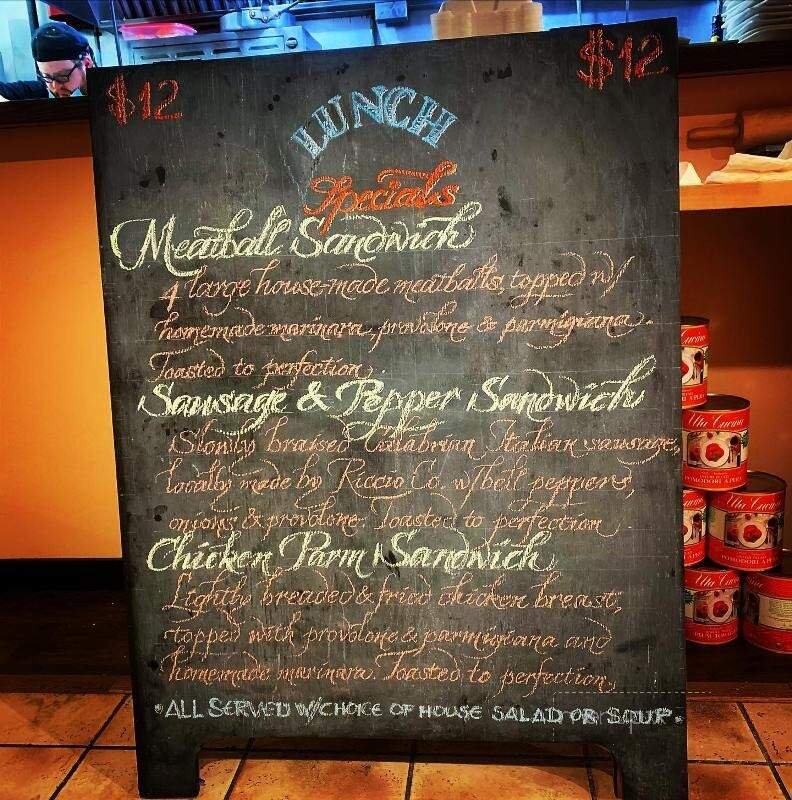 $12 $12
LUNCH
Specials
Meatball Sandwich
4 large house-made meatballs, topped w/
homemade marinara, provolone & parmigiana.
Toasted to perfection.
Sausage & Pepper Sandwich
Slowly braised Calabrian Italian sausage,
locally made by Riccio Co. w/bell peppers,
onions & provolone. Toasted to perfection.
Chicken Parm Sandwich
Lightly breaded & fried chicken breast,
topped with provolone & parmigiana and
homemade marinara. Toasted to perfection.
•ALL SERVED W/CHOICE OF HOUSE SALAD OR SOUP•